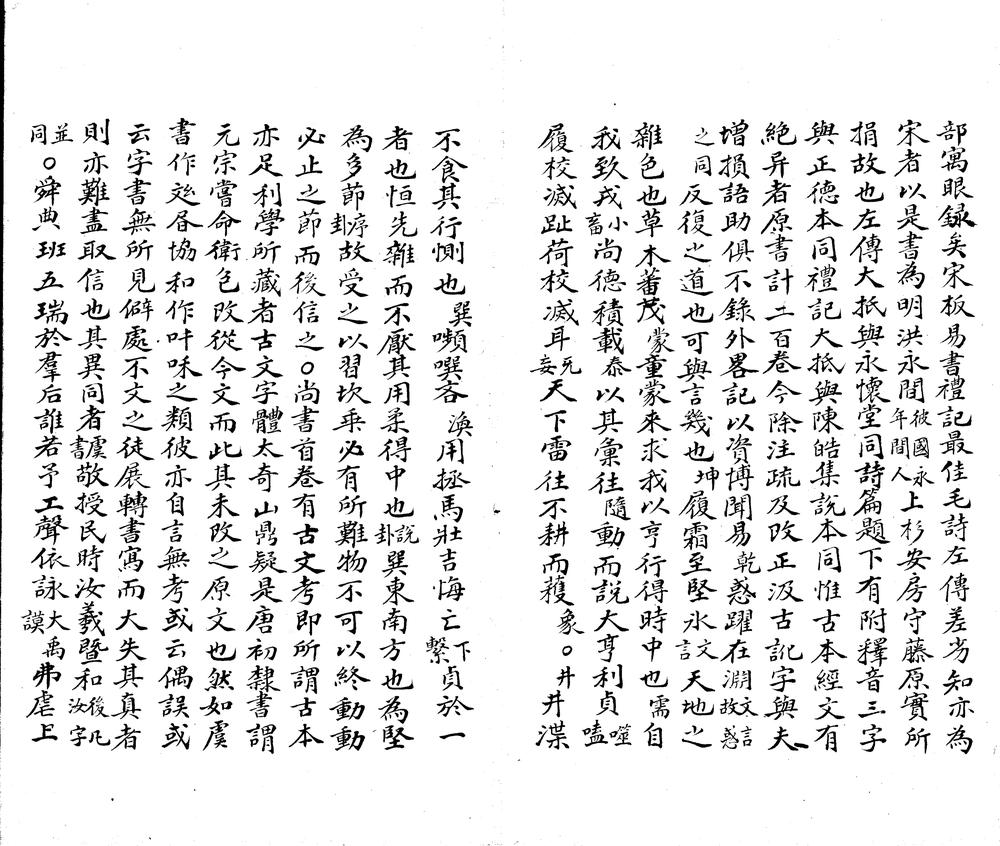 部寓眼録矣宋板易書禮記最佳毛詩左傳差劣知亦為
宋者以是書為明洪永間彼國永年間人上杉安房守藤原實所
捐故也左傳大抵與永懷堂同詩篇題下有附釋音三字
與正德本同禮記大抵與陳皓集説本同惟古本經文有
絶异者原書計二百卷今除注疏及改正汲古訛字與夫
增損語助俱不錄外畧記以資博聞易乾惑躍在淵文言故惑
之同反復之道也可與言幾也坤履霜至堅氷文言天地之
雜色也草木蕃茂蒙童蒙來求我以亨行得時中也需自
我致戎小畜尚德積載泰以其彙往隨動而説大亨利貞噬嗑
履校滅趾荷校滅耳无妄天下雷往不耕而穫象○井井渫
不食其行惻也巽嚬㗲吝渙用拯馬壯吉悔亡下繫貞於一
者也恒先雜而不厭其用柔得中也説卦巽東南方也為堅
為多節序卦故受之以習坎乘必有所難物不可以終動動
必止之節而後信之○尚書首卷有古文考即所謂古本
亦足利學所藏者古文字體太奇山鼎疑是唐初隸書謂
元宗嘗命衛包改從今文而此其未改之原文也然如虞
書作㳫㫺協和作叶咊之類彼亦自言無考或云偶誤或
云字書無所見僻處不文之徒展轉書寫而大失其真者
則亦難盡取信也其異同者虞書敬授民時汝羲暨和後凡汝字
並同○舜典班五瑞於羣后誰若予工聲依詠大禹謨弗虐𠄞